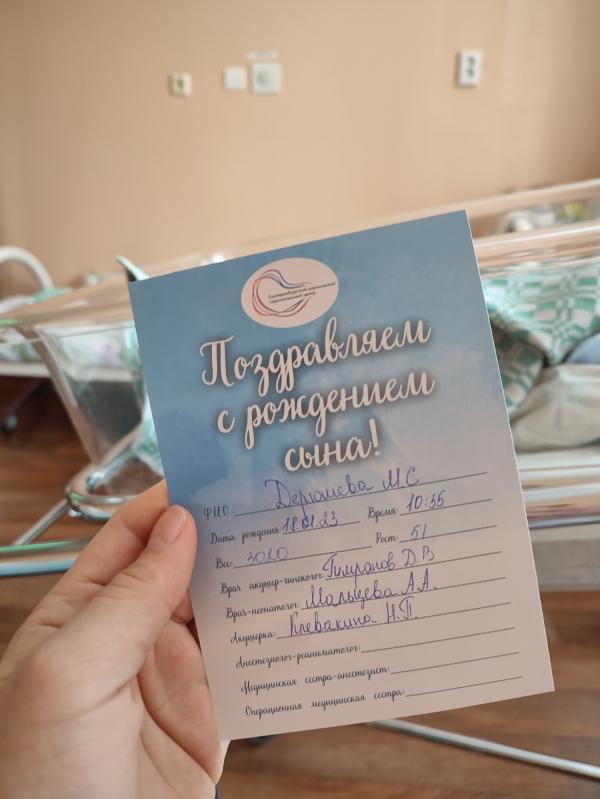 Екатеринбургский клинический
перинатальный центр
Поздравляем
с рождением
сына!
ФИО: Дерюшева М.С
Дата рождения: 18.01.23 Время: 10:35
Вес: 3020 Рост: 51
Врач акушер-гинеколог: Тимранов Д.В
Врач-неонатолог: Мальцева А.А.
Акушерка: Клевакина Н.П.
Анестезиолог-реаниматолог:
Медицинская сестра-анестезист:
Операционная медицинская сестра: